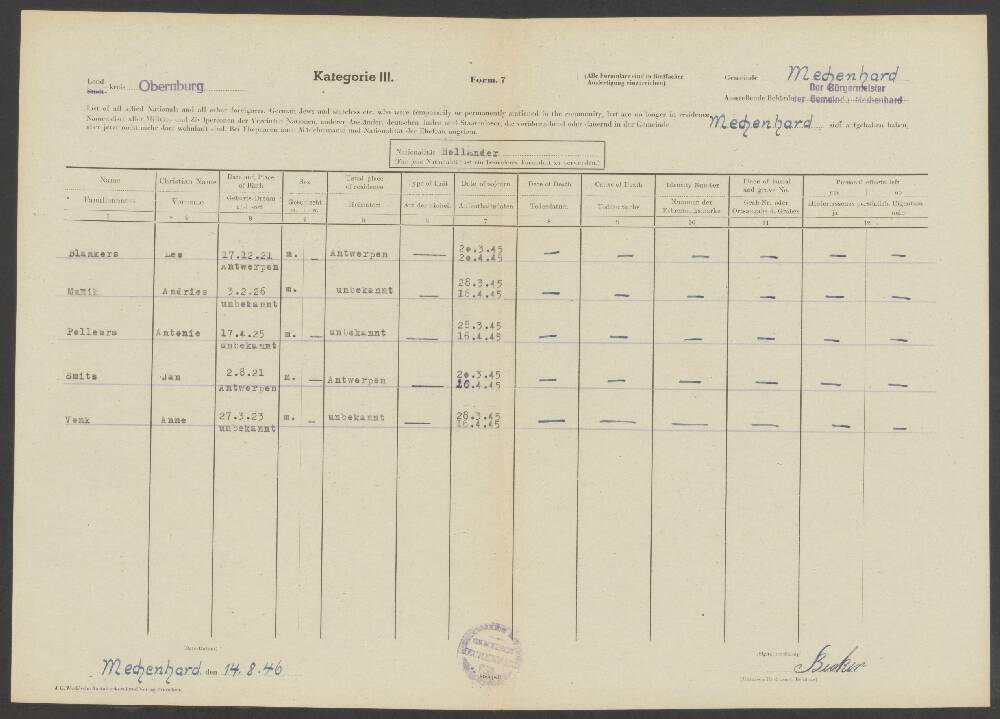 Land
Stadt- kreis Obernburg
Kategorie III.
Form. 7
(Alle Formulare sind in fünffacher
Ausfertigung einzureichen)
Gemeinde Mechenhard
Der Bürgermeister
Ausstellende Behörde der Gemeinde Mechenhard
List of all Allied Nationals and all other foreigners, German Jews and stateless etc. who were temporarily or permanently stationed in the community, but are no longer in residence.
Namensliste aller Militär- und Zivilpersonen der Vereinten Nationen, anderer Ausländer, deutschen Juden und Staatenloser, die vorübergehend oder dauernd in der Gemeinde Mechenhard sich aufgehalten haben,
aber jetzt nicht mehr dort wohnhaft sind. Bei Ehepaaren auch Mädchenname und Nationalität der Ehefrau angeben.
Nationalität Holländer
(Für jede Nationalität ist ein besonderes Formblatt zu verwenden.)
Name Christian Name Date and Place of Birth Sex Type of knit Date of sojourn Date of Death Cause of Death Identity Number Place of burial and grave No. Personal effects left
yes no
Familienname Vorname Geburts-Datum und -ort Geschlecht m. w. Heimatort Aufenthaltsdaten Todesdatum Todesursache Nummer der Erkennungsmarke Grab-Nr. oder Ortsangabe d. Grabes Hinterlassenes persönlich. Eigentum
ja nein
1 2 3 4 5 6 7 8 9 10 11 12
Blankers 17.12.21 m. — Antwerpen — 20.3.45 — — — — — —
Antwerpen 20.4.45
Andries 3.2.26 m. unbekannt — 28.3.45 — — — — — —
unbekannt 16.4.45
Pelleurs Antonie 17.4.25 m. — unbekannt — 28.3.45 — — — — — —
unbekannt 16.4.45
Smits Jan 2.8.21 m. — Antwerpen — 20.3.45 — — — — — —
Antwerpen 20.4.45
Venk Anne 27.3.23 m. — unbekannt — 28.3.45 — — — — — —
unbekannt 16.4.45
(Date-Datum)
Mechenhard, den 14.8.46